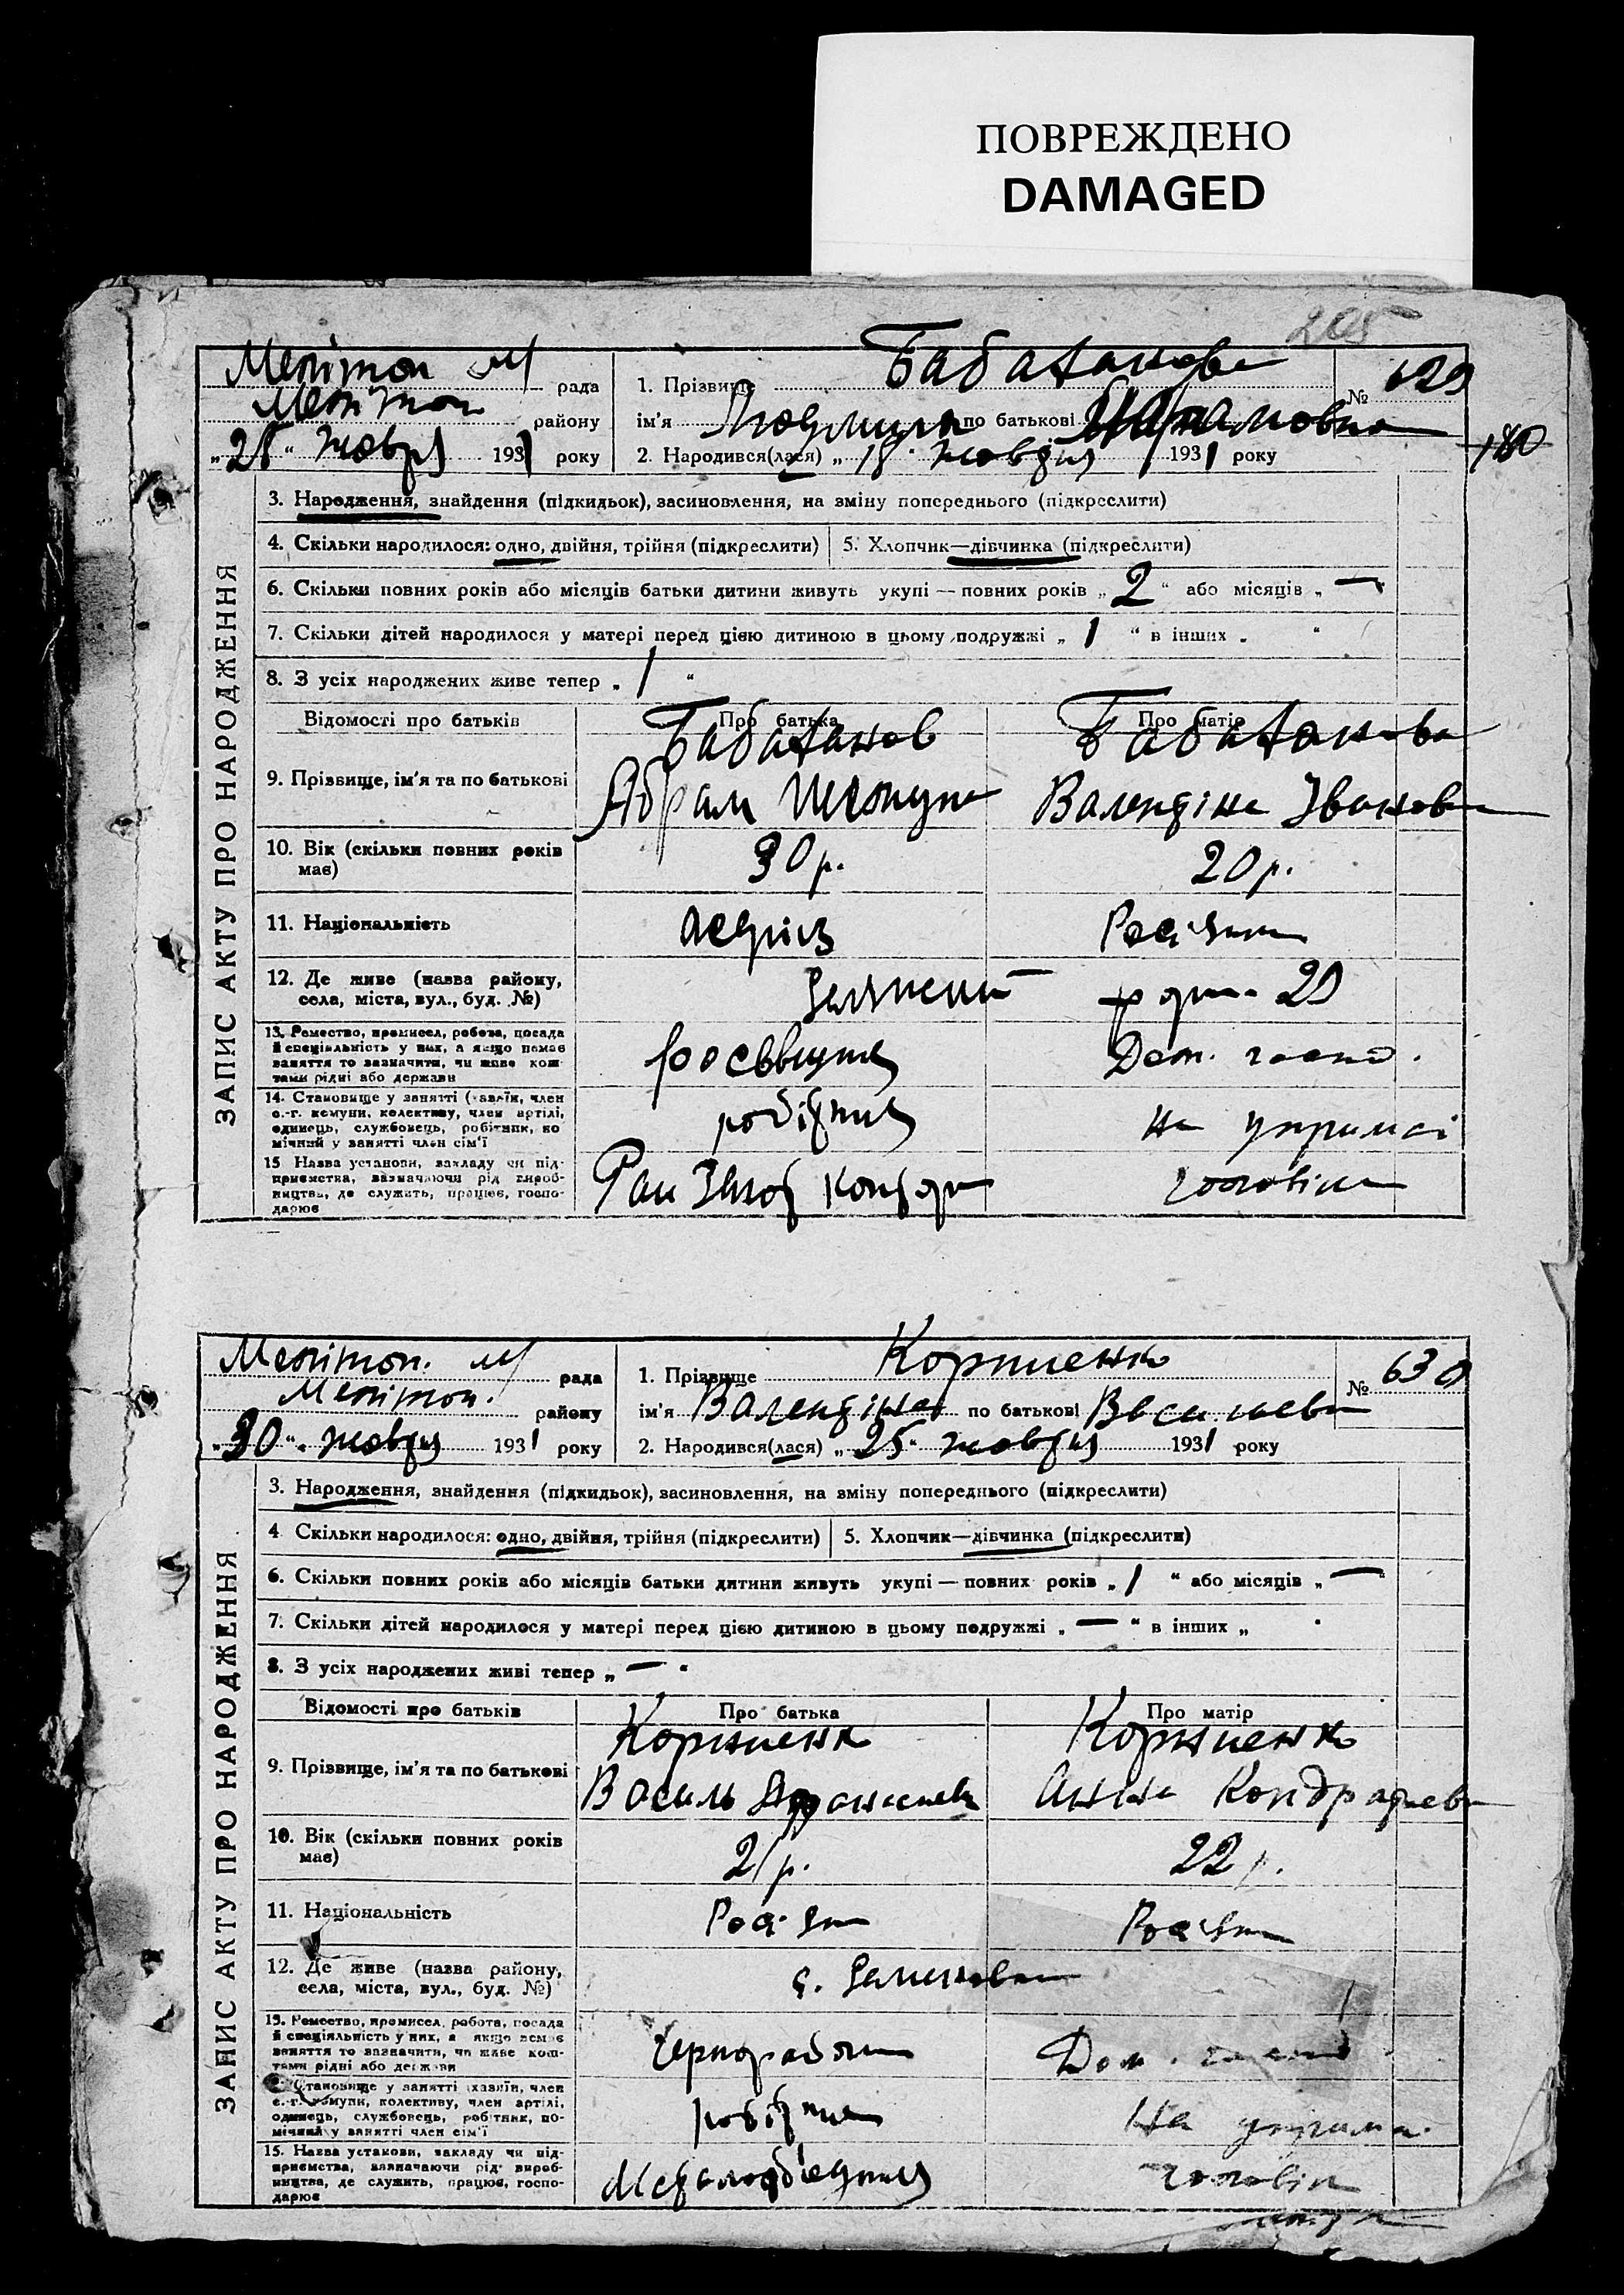 ПОВРЕЖДЕНО
DAMAGED
205
Мелітоп м/ рада
Мелітоп району
„28“ жовтня 1931 року
1. Прізвище Бабаханова № 629
ім'я Людмила по батькові
2. Народився(лася) „18“ жовтня 1931 року
180
ЗАПИС АКТУ ПРО НАРОДЖЕННЯ
3. Народження, знайдення (підкидьок), засиновлення, на зміну попереднього (підкреслити)
4. Скільки народилося: одно, двійня, трійня (підкреслити) 5. Хлопчик—дівчинка (підкреслити)
6. Скільки повних років або місяців батьки дитини живуть укупі — повних років „2“ або місяців „—“
7. Скільки дітей народилося у матері перед цією дитиною в цьому подружжі „1“ в інших „ “
8. З усіх народжених живе тепер „1“
Відомості про батьків Про батька Про матір
Бабаханов Бабаханова
9. Прізвище, ім'я та по батькові Абрам Валентіна Іванов
10. Вік (скільки повних років має) 30 р. 20 р.
11. Національність Росіянк
12. Де живе (назва району, села, міста, вул., буд. №) 29
13. Ремество, промисел, робота, посада й спеціяльність у них, а якщо немає заняття то зазначити, чи живе коштами рідні або держави Дом. госпо.
14. Становище у занятті (хазяїн, член с.-г. комуни, колективу, член артілі, одинець, службовець, робітник, помічний у занятті член сім'ї робітник на утримані
15 Назва установи, закладу чи підприємства, зазначаючи рід виробництва, де служить, працює, господарює чоловіка
Мелітоп. м/ рада
Мелітоп. району
„30“ жовтня 1931 року
1. Прізвище Корниенко № 630
ім'я Валентіна по батькові Василев
2. Народився(лася) „25“ жовтня 1931 року
ЗАПИС АКТУ ПРО НАРОДЖЕННЯ
3. Народження, знайдення (підкидьок), засиновлення, на зміну попереднього (підкреслити)
4 Скільки народилося: одно, двійня, трійня (підкреслити) 5. Хлопчик—дівчинка (підкреслити)
6. Скільки повних років або місяців батьки дитини живуть укупі — повних років „1“ або місяців „—“
7. Скільки дітей народилося у матері перед цією дитиною в цьому подружжі „—“ в інших „
8. З усіх народжених живі тепер „—“
Відомості про батьків Про батька Про матір
Корниенко Корниенко
9. Прізвище, ім'я та по батькові Василь Анна Кондратьев
10. Вік (скільки повних років має) 21 р. 22 р.
11. Національність Росіян Росіян
12. Де живе (назва району, села, міста, вул., буд. №) с.
13. Ремество, промисел, робота, посада й спеціяльність у них, а якщо немає заняття то зазначити, чи живе коштами рідні або держави Чернороб Дом. госпо
Становище у занятті (хазяїн, член с.-г. комуни, колективу, член артілі, одинець, службовець, робітник, помічний у занятті член сім'ї робітник На утрима
15. Назва установи, закладу чи підприємства, зазначаючи рід виробництва, де служить, працює, господарює чоловік